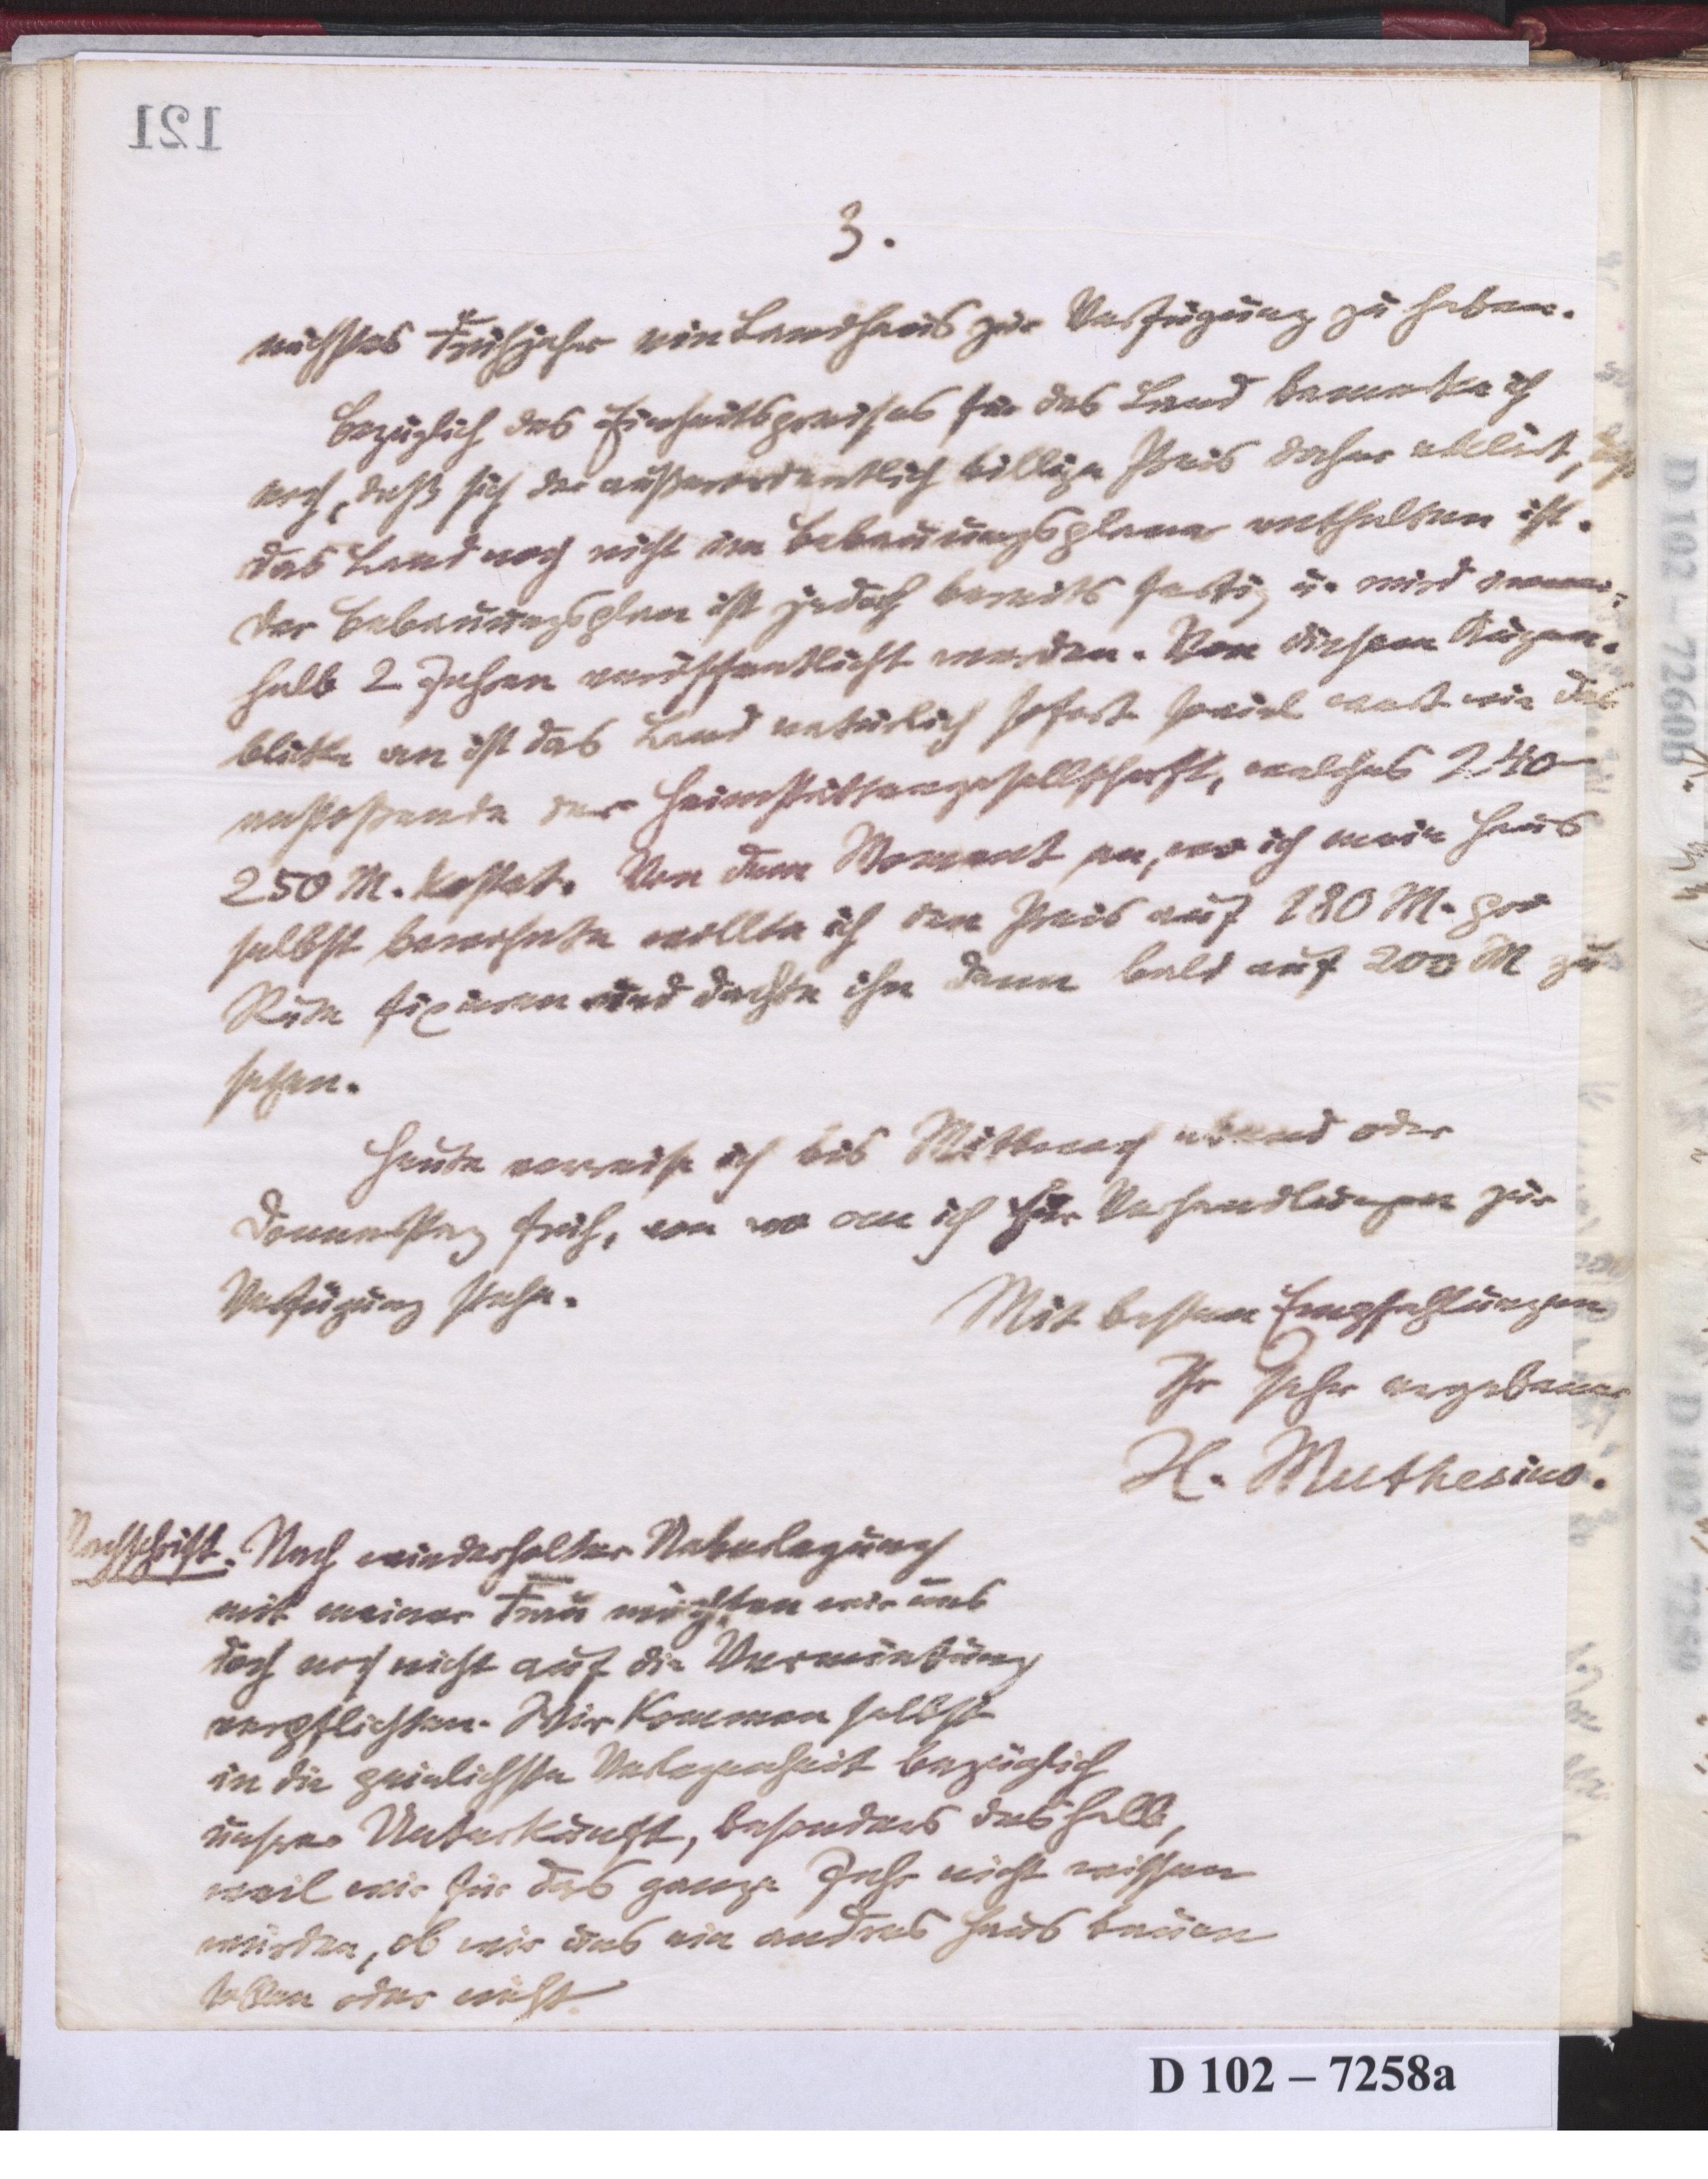 121
3.
nächstes Frühjahr ein Landhaus zur Verfügung zu haben.
Bezüglich des Einheitspreises für das Land bemerke ich
noch, daß sich der außerordentlich billige Preis daher erklärt, daß
das Land noch nicht im Bebauungsplane enthalten ist.
Der Bebauungsplan ist jedoch bereits fertig u. wird inner-
halb 2 Jahren veröffentlicht werden. Von diesem Augen-
blicke an ist das Land natürlich sofort soviel wert wie das
anstoßende der Heimstättengesellschaft, welches 240–
250 M. kostet. Von dem Moment an, wo ich mein Haus
selbst bewohnte wollte ich den Preis auf 180 M. pro
Rute fixieren und dachte ihn dann bald auf 200 M zu
setzen.
Heute verreise ich bis Mittwoch abend oder
Donnerstag früh, von wo an ich für Verhandlungen zur
Verfügung stehe.
Mit besten Empfehlungen
Ihr sehr ergebener
H. Muthesius.
Nachschrift. Nach wiederholter Ueberlegung
mit meiner Frau möchten wir uns
doch noch nicht auf die Vermietung
verpflichten. Wir kommen selbst
in die peinlichste Verlegenheit bezüglich
unsrer Unterkunft, besonders deshalb,
weil wir für das ganze Jahr nicht wissen
würden, ob wir uns ein andres Haus bauen
sollen oder nicht.
D 102 – 7258a
D 102 – 7260b